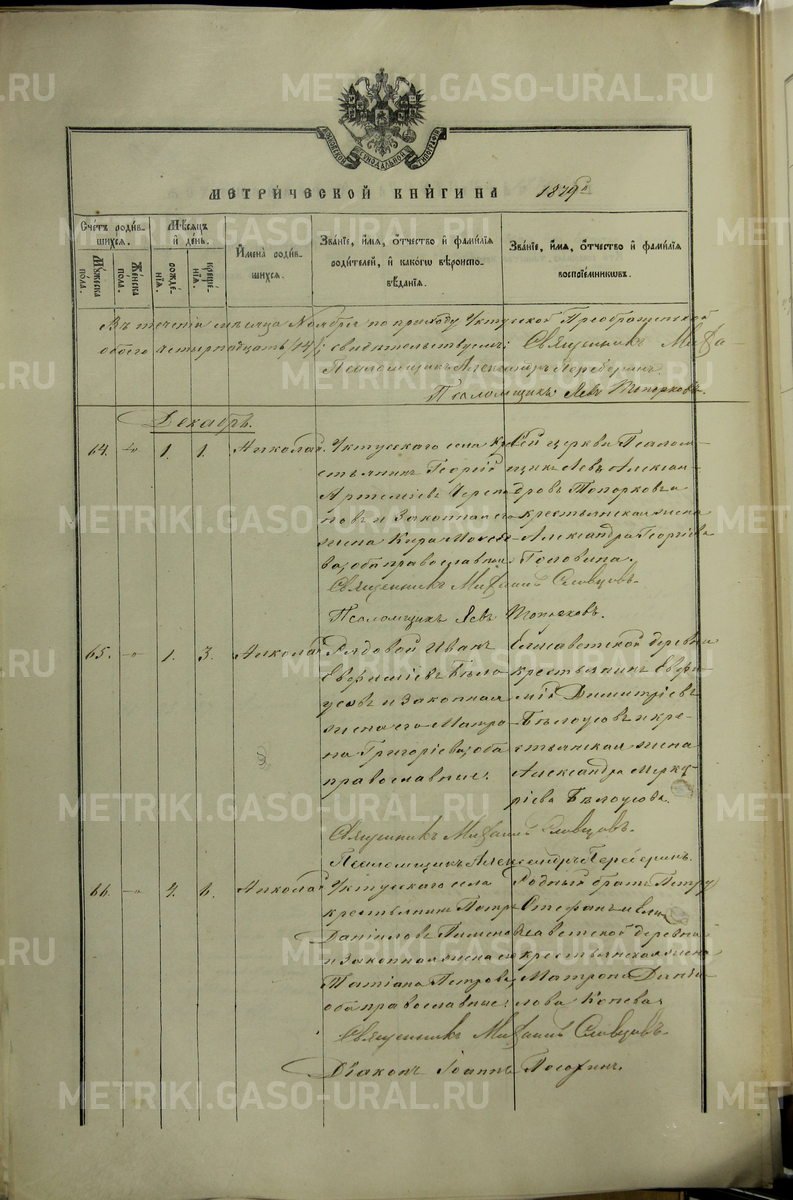 МЕТРИ́ЧЕСКОЙ КНИ́ГИ НА 1879 го
Сче́тъ роди́в-
шихся.
Мꙋ́жеска
по́ла.
Же́нска
по́ла.
Мѣ́сяцъ
и҆ де́нь.
рожде́-
нїѧ.
креще́-
нїѧ.
И҆мена̀ роди́в-
шихся.
Зва́нїе, и҆́мя, ѻ҆́тчество и҆ фами́лїя
роди́телей, и҆ како́гѡ вѣроиспо-
вѣ́данїя.
Зва́нїе, и҆́мя, ѻ҆́тчество и҆ фами́лїя
воспрїе́мникѡвъ.
Въ течении месяца Ноября по приходу Уктусской Преображенской
обоего четырнадцать /14/; свидѣтельствуемъ: Священникъ Миха-
Псаломщикъ Александръ Переберинъ.
Псаломщикъ Левъ Топорковъ.
Декабрь.
64. 1. 1. Николай
Уктусского села кре-
стьянинъ Георгій
Артеміевъ
и законная его
жена
ва, оба православныи.
Сей церкви Псалом-
щикъ Левъ Алексан-
дровъ Топорковъ и
крестьянская жена
Александра Георгіева
Головина.
Священникъ Михаилъ Словцовъ.
Псаломщикъ Левъ Топорковъ.
65. 1. 3. Николай
Рядовой Иванъ
Евфиміевъ Бѣло-
усовъ и законная
жена его Матро-
на Григоріева, оба
православные.
Елисаветской деревни
крестьянинъ Евфи-
мій Димитріевъ
Бѣлоусовъ и кре-
стьянская жена
Александра Мерку-
ріева Бѣлоусова.
Священникъ Михаилъ Словцовъ.
Псаломщикъ Александръ Переберинъ.
66. 4. 6. Николай
Уктусского села
крестьянинъ Петръ
Даніиловъ
и законная жена его
Татіана Петрова,
оба православные.
Родный братъ Петру
Стефанъ и Ели-
саветской деревни
крестьянская жена
Матрона Дании-
лова Конева.
Священникъ Михаилъ Словцовъ.
Діаконъ Іоаннъ
METRIKI.GASO-URAL.RU